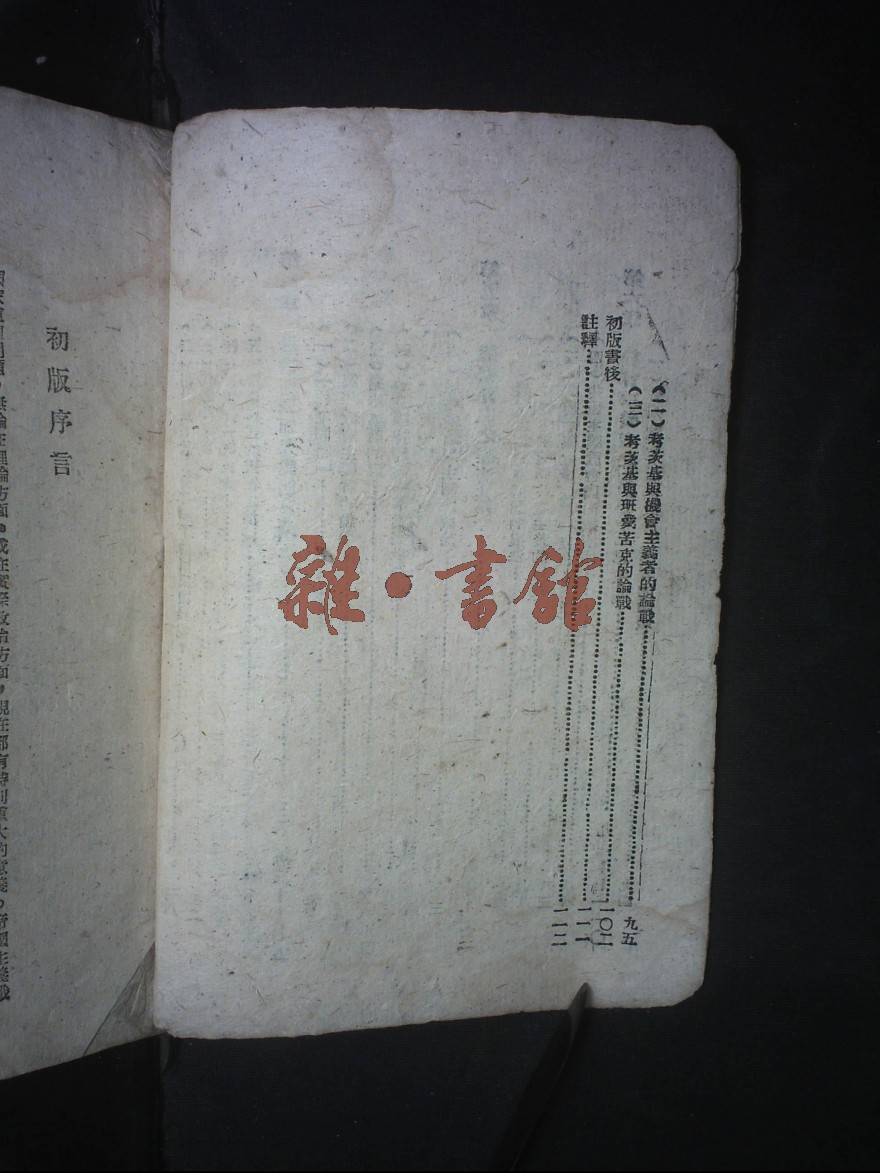 （二）考茨基與機會主義者的論戰……九五
（三）考茨基與班愛苦克的論戰……一〇二
初版書後……一一一
註釋……一一二
初版序言
無論在理論方面，或在實際政治方面，現在都有特別重大的意義，帝國主義戰
雜·書館